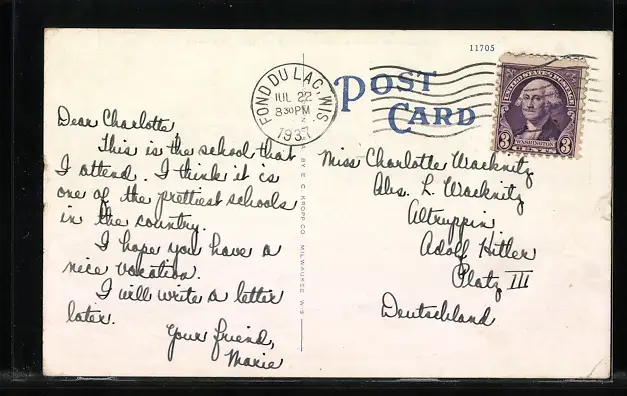 11705
POST
CARD
FOND DU LAC, WIS.
JUL 22
8 30 PM
1937
UNITED STATES POSTAGE
WASHINGTON
3 CENTS 3
Dear Charlotte,
This is the school that
I attend. I think it is
one of the prettiest schools
in the country.
I hope you have a
nice vacation.
I will write a letter
later.
Your friend,
Marie
BY E. C. KROPP CO. MILWAUKEE WIS.
Miss Charlotte Wacknitz
Abs. L. Wacknitz
Altruppin
Adolf Hitler
Platz III
Deutschland